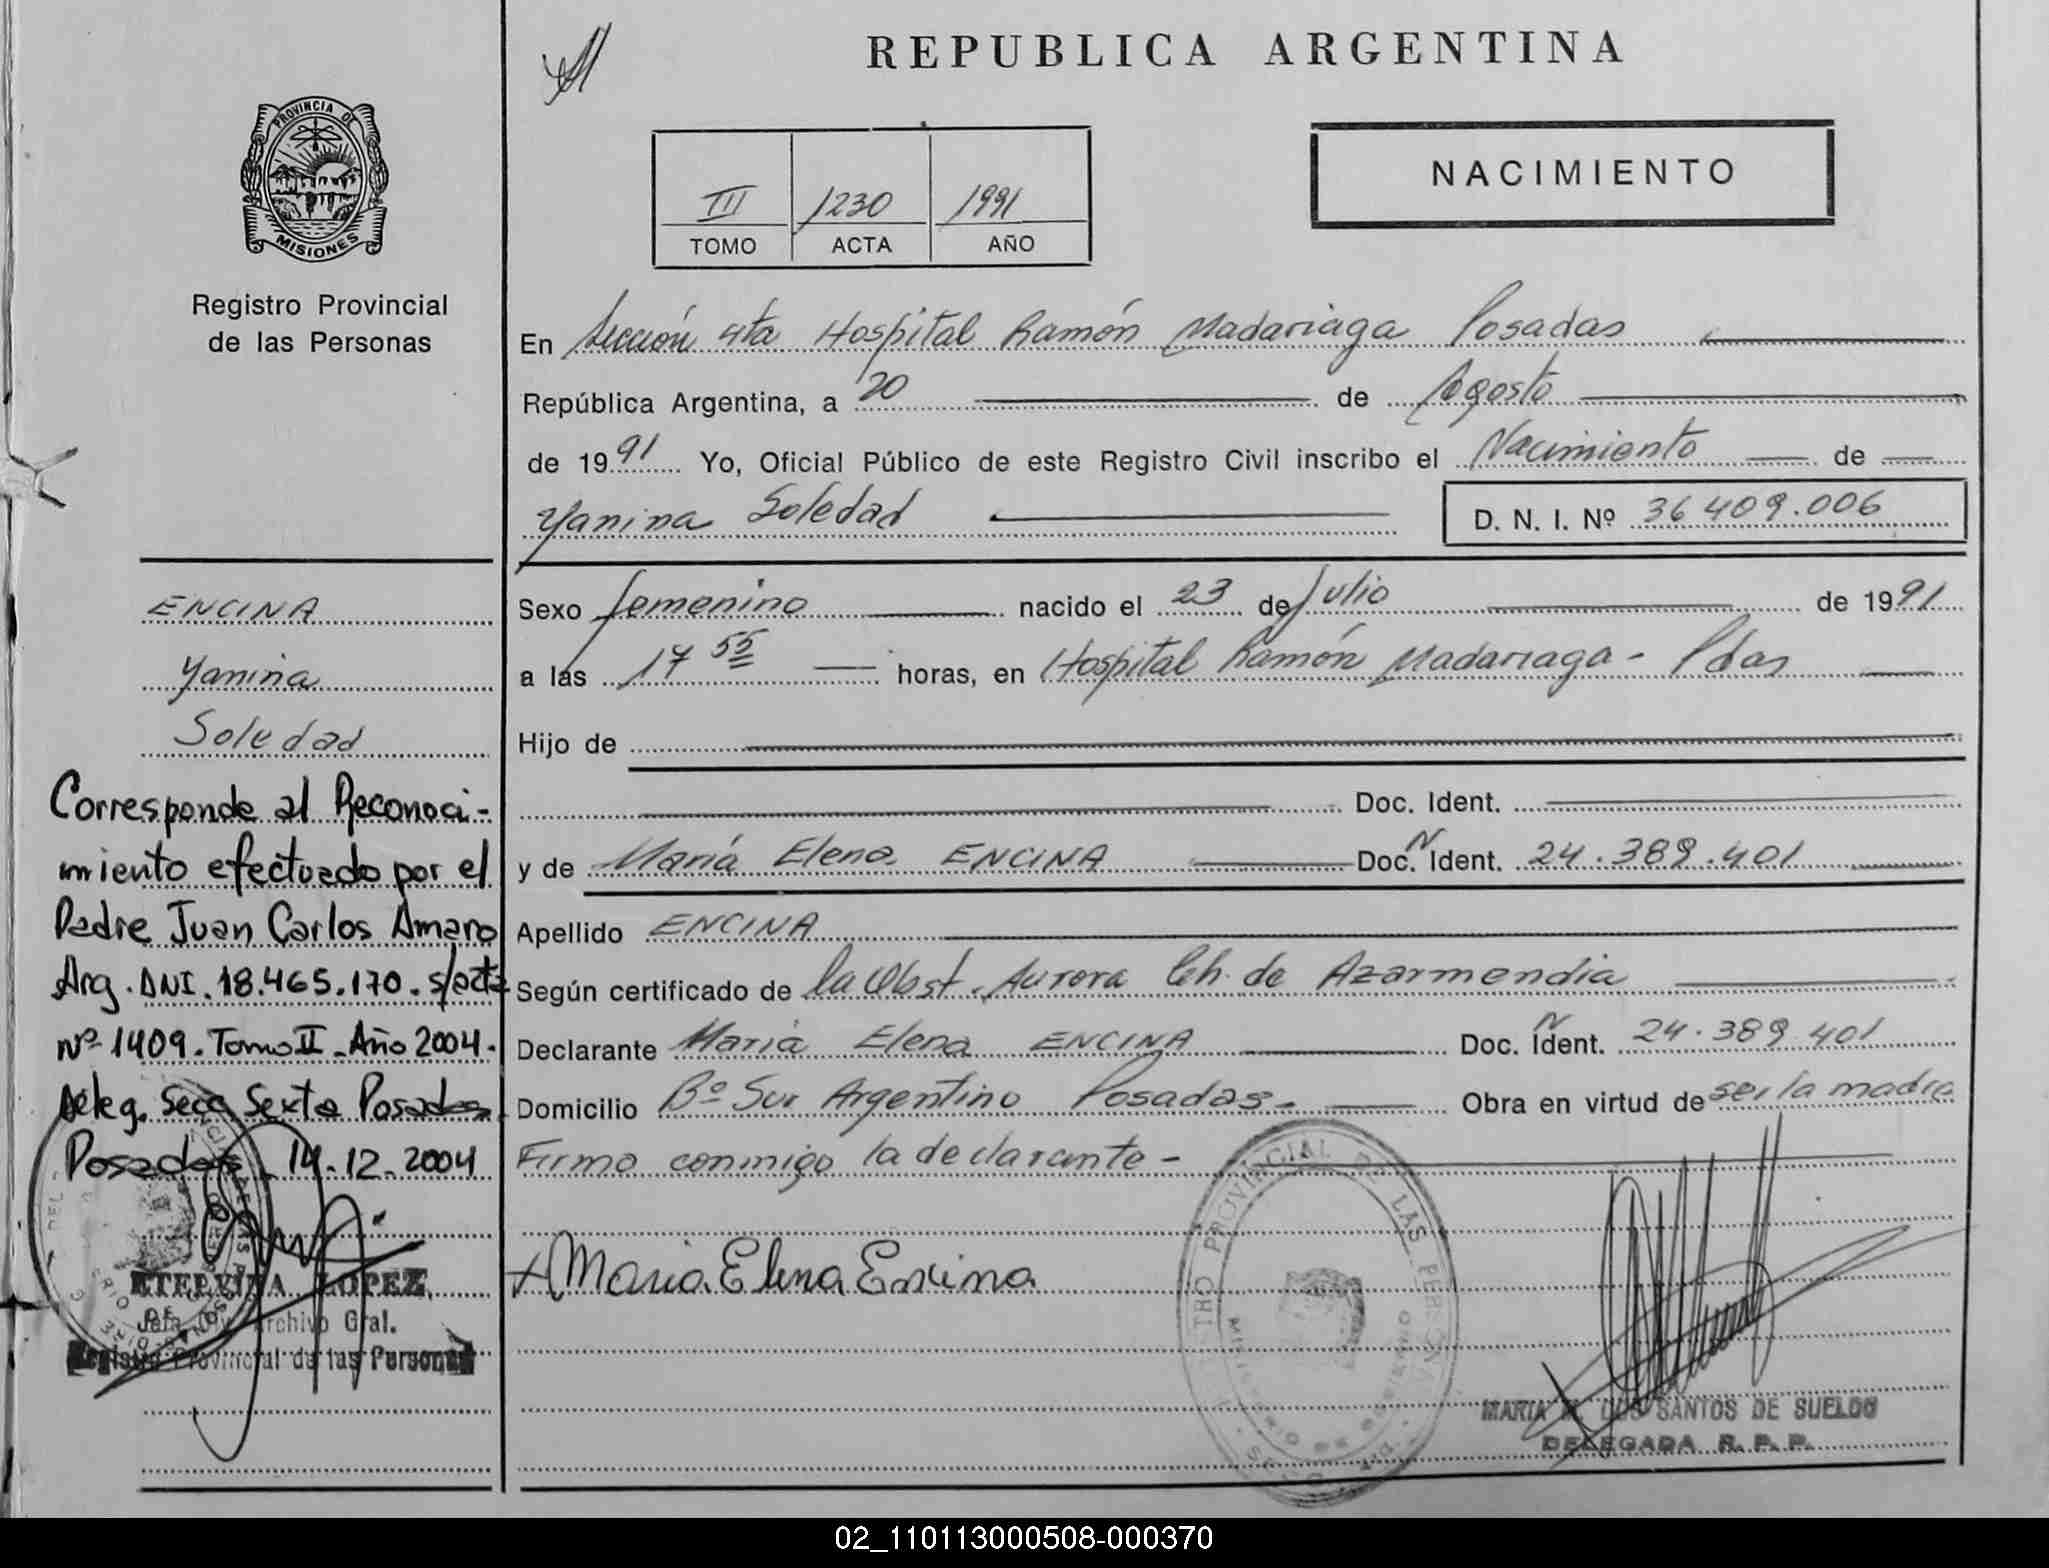 REPUBLICA ARGENTINA
PROVINCIA DE
MISIONES
Registro Provincial
de las Personas
NACIMIENTO
III 1230 1991
TOMO ACTA AÑO
En Sección 4ta Hospital Ramón Madariaga Posadas
República Argentina, a 20 de Agosto
de 1991 Yo, Oficial Público de este Registro Civil inscribo el Nacimiento de
Yanina Soledad D. N. I. Nº 36 409.006
Sexo femenino nacido el 23 de Julio de 1991
a las 17 55 horas, en Hospital Ramón Madariaga - Pdas
Hijo de
Doc. Ident.
y de María Elena ENCINA Doc. N Ident. 24.389.401
Apellido ENCINA
Según certificado de la Obst. Aurora Ch. de Azarmendia
Declarante María Elena ENCINA Doc. N Ident. 24.389.401
Domicilio Bº Sur Argentino Posadas.- Obra en virtud de ser la madre
Firma conmigo la declarante -
María Elena Encina
MARIA M. DOS SANTOS DE SUELDO
DELEGADA R. P. P.
ENCINA
Yanina
Soledad
Corresponde al Reconoci-
miento efectuado por el
Padre Juan Carlos Amaro
Arg. DNI. 18.465.170. s/acta
Nº 1409. Tomo II. Año 2004.
Deleg. Secc Sexta Posadas.
Posadas. 14.12.2004
ETELVINA LOPEZ
Jefa Archivo Gral.
Registro Provincial de las Personas
REGISTRO PROVINCIAL DE LAS PERSONAS
MINISTERIO DE GOBIERNO
02_110113000508-000370